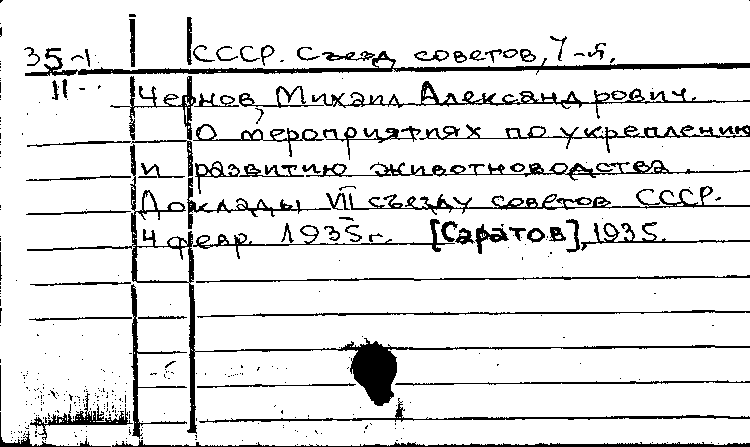 35-1 СССР. Съезд советов, 7-й.
11-
Чернов, Михаил Александрович.
О мероприятиях по укреплению
и развитию животноводства.
Доклады VII съезду советов СССР.
4 февр. 1935 г. [Саратов], 1935.